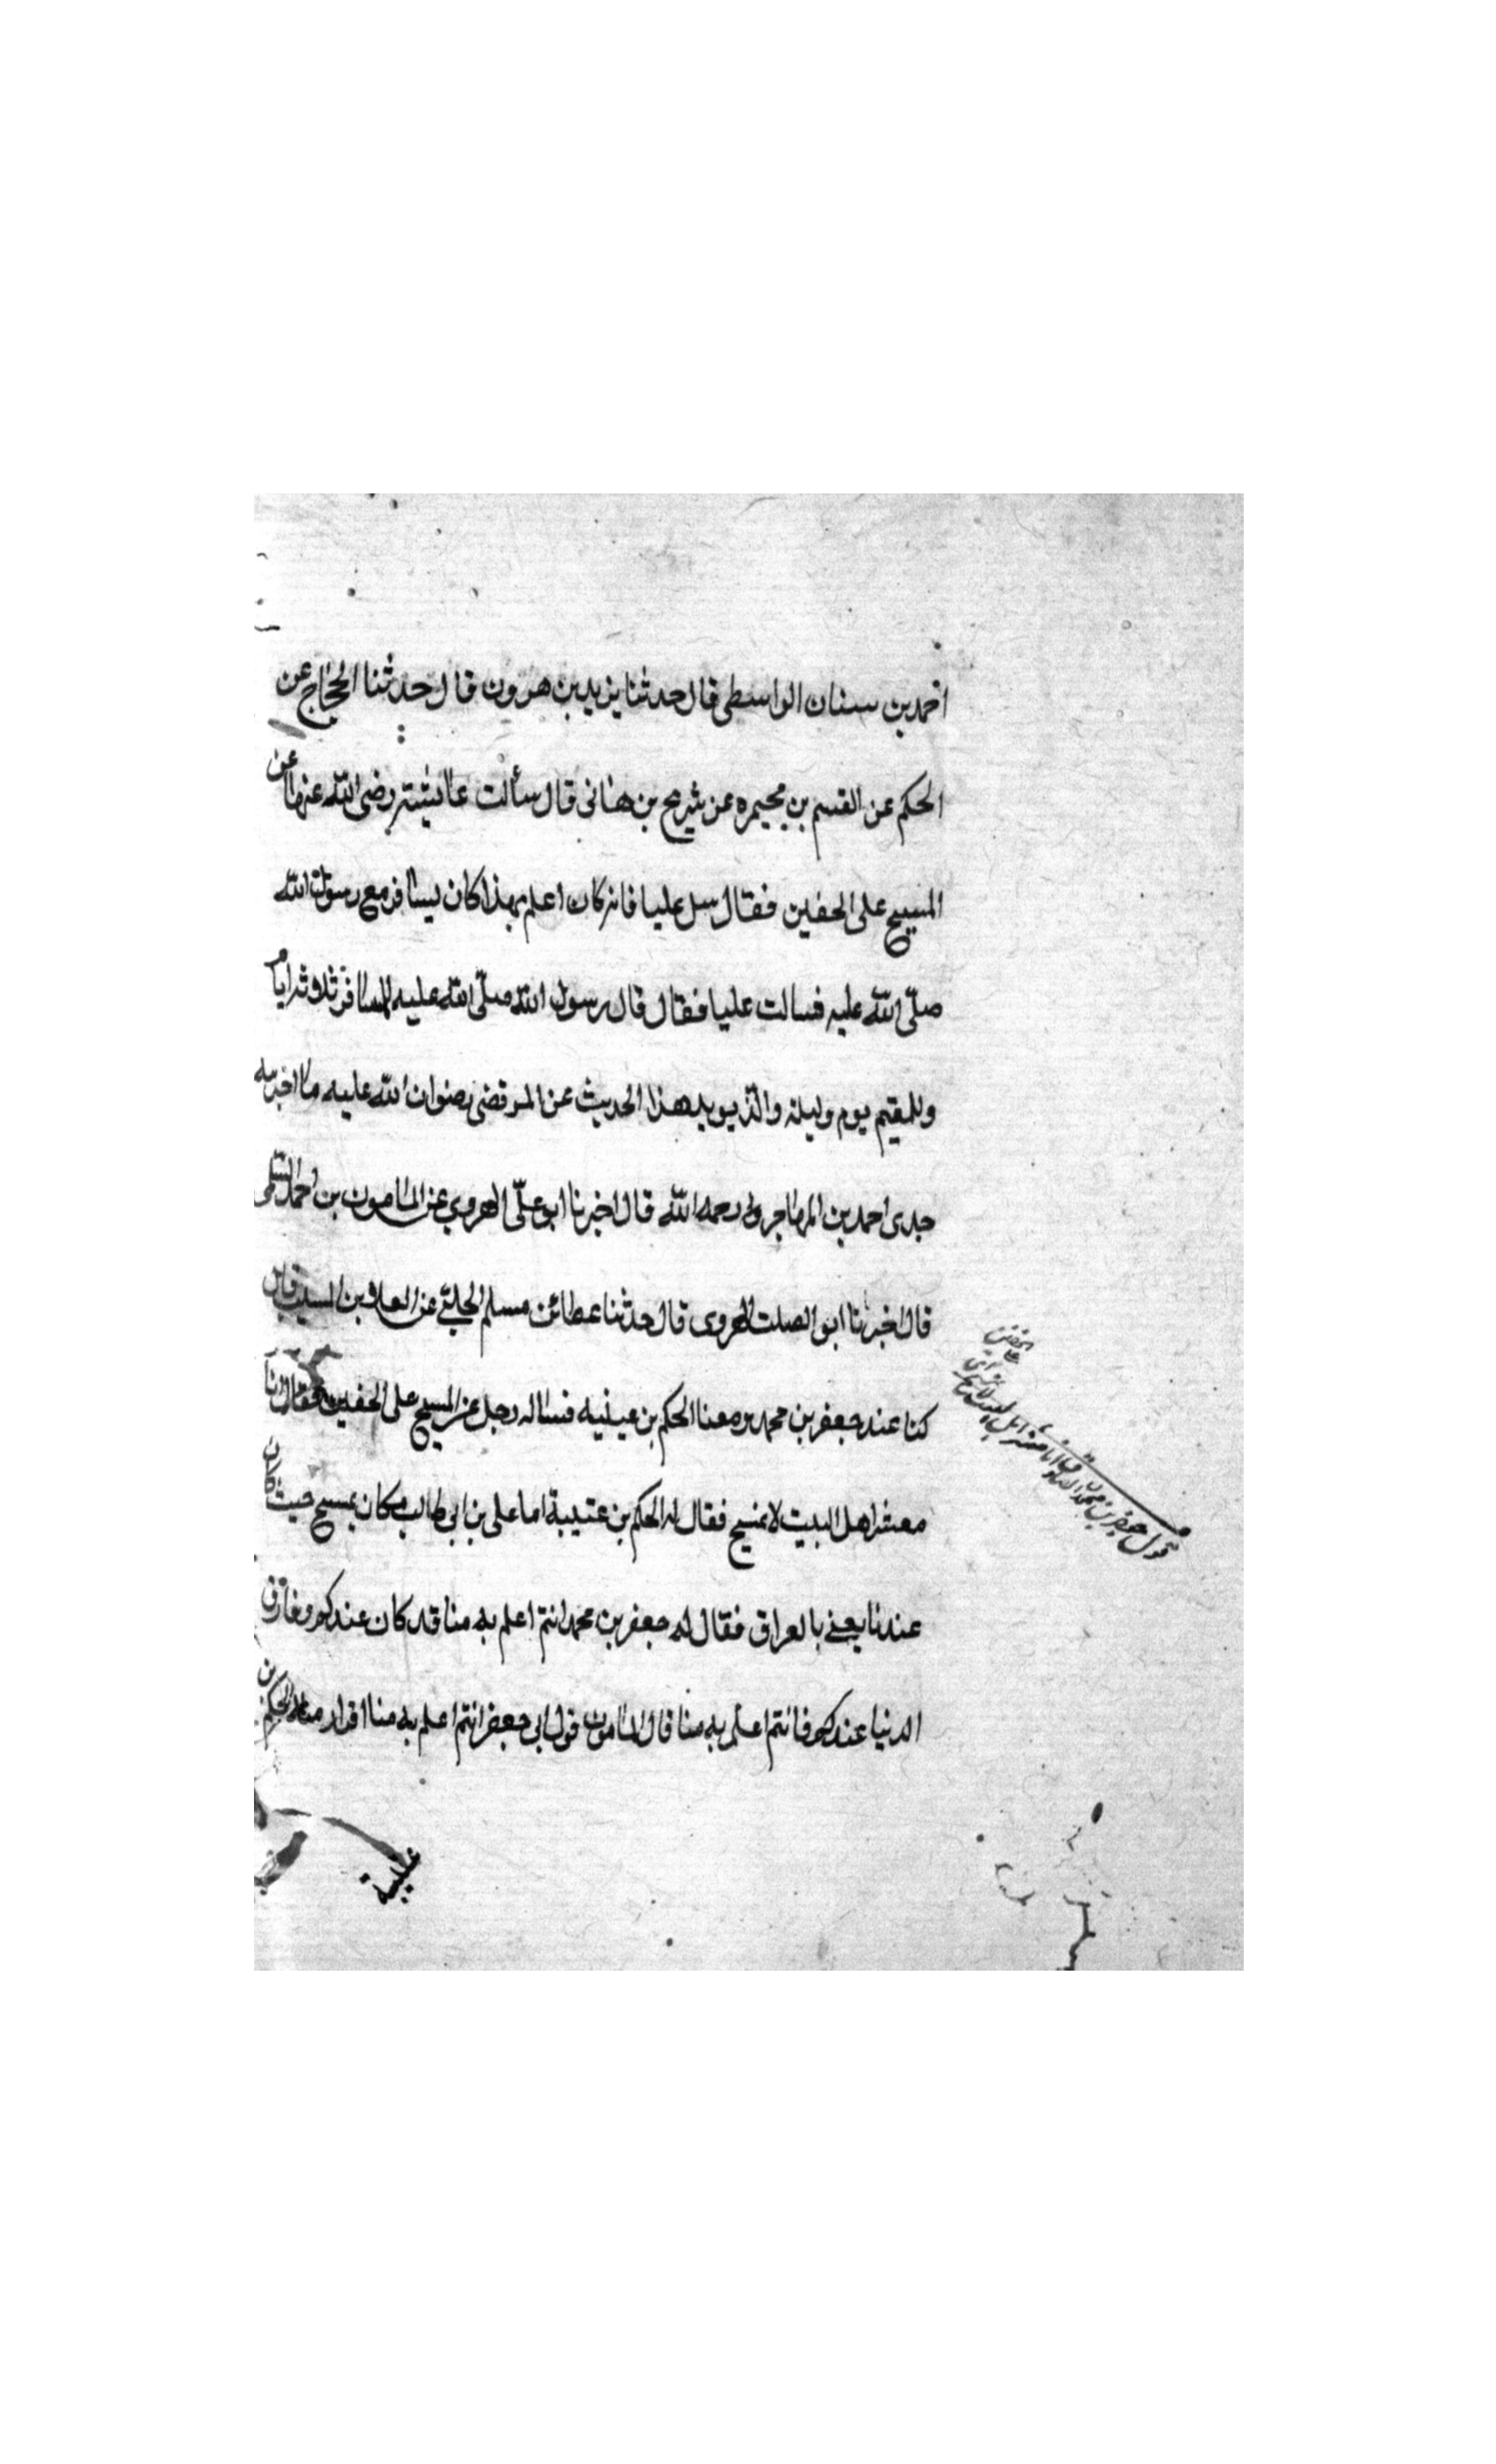 احمد بن سنان الواسطى قال حدثنا يزيد بن هرون قال حدثنا الحجاج عن
الحكم عن القسم بن مخيمره عن شريح بن هانى قال سألت عايشة رضى الله عنها عن
المسح على الخفين فقال سل عليا فانه كان اعلم بهذا كان يسافر مع رسول الله
صلى الله عليه فسالت عليا فقال قال رسول الله صلى الله عليه للمسافر ثلاثة ايام
وللمقيم يوم وليلة والذ يويد هذا الحديث عن المرتضى رضوان الله عليه ما اخبر به
جدى احمد بن المهاجر رحمه الله قال اخبرنا ابو على الهروي عن المامون بن احمد السلمى
قال اخبرنا ابو الصلت الهروى قال حدثنا عطا بن مسلم الحلبي عن العلا بن المسيب قال
كنا عند جعفر بن محمد ومعنا الحكم بن عيينه فساله رجل عن المسح على الخفين فقال انا
معشر اهل البيت لا نمسح فقال له الحكم بن عتيبة اما على بن ابى طالب فكان يمسح حيث كان
عندنا يعني بالعراق فقال له جعفر بن محمد انتم اعلم به منا قد كان عندكم وفارق
الدنيا عندكم فانتم اعلم به منا قال المامون قول ابى جعفر انتم اعلم به منا اقرار منه الحكم
قول جعفر بن محمد الصادق انا معشر اهل البيت لا نمسح
على الخفين